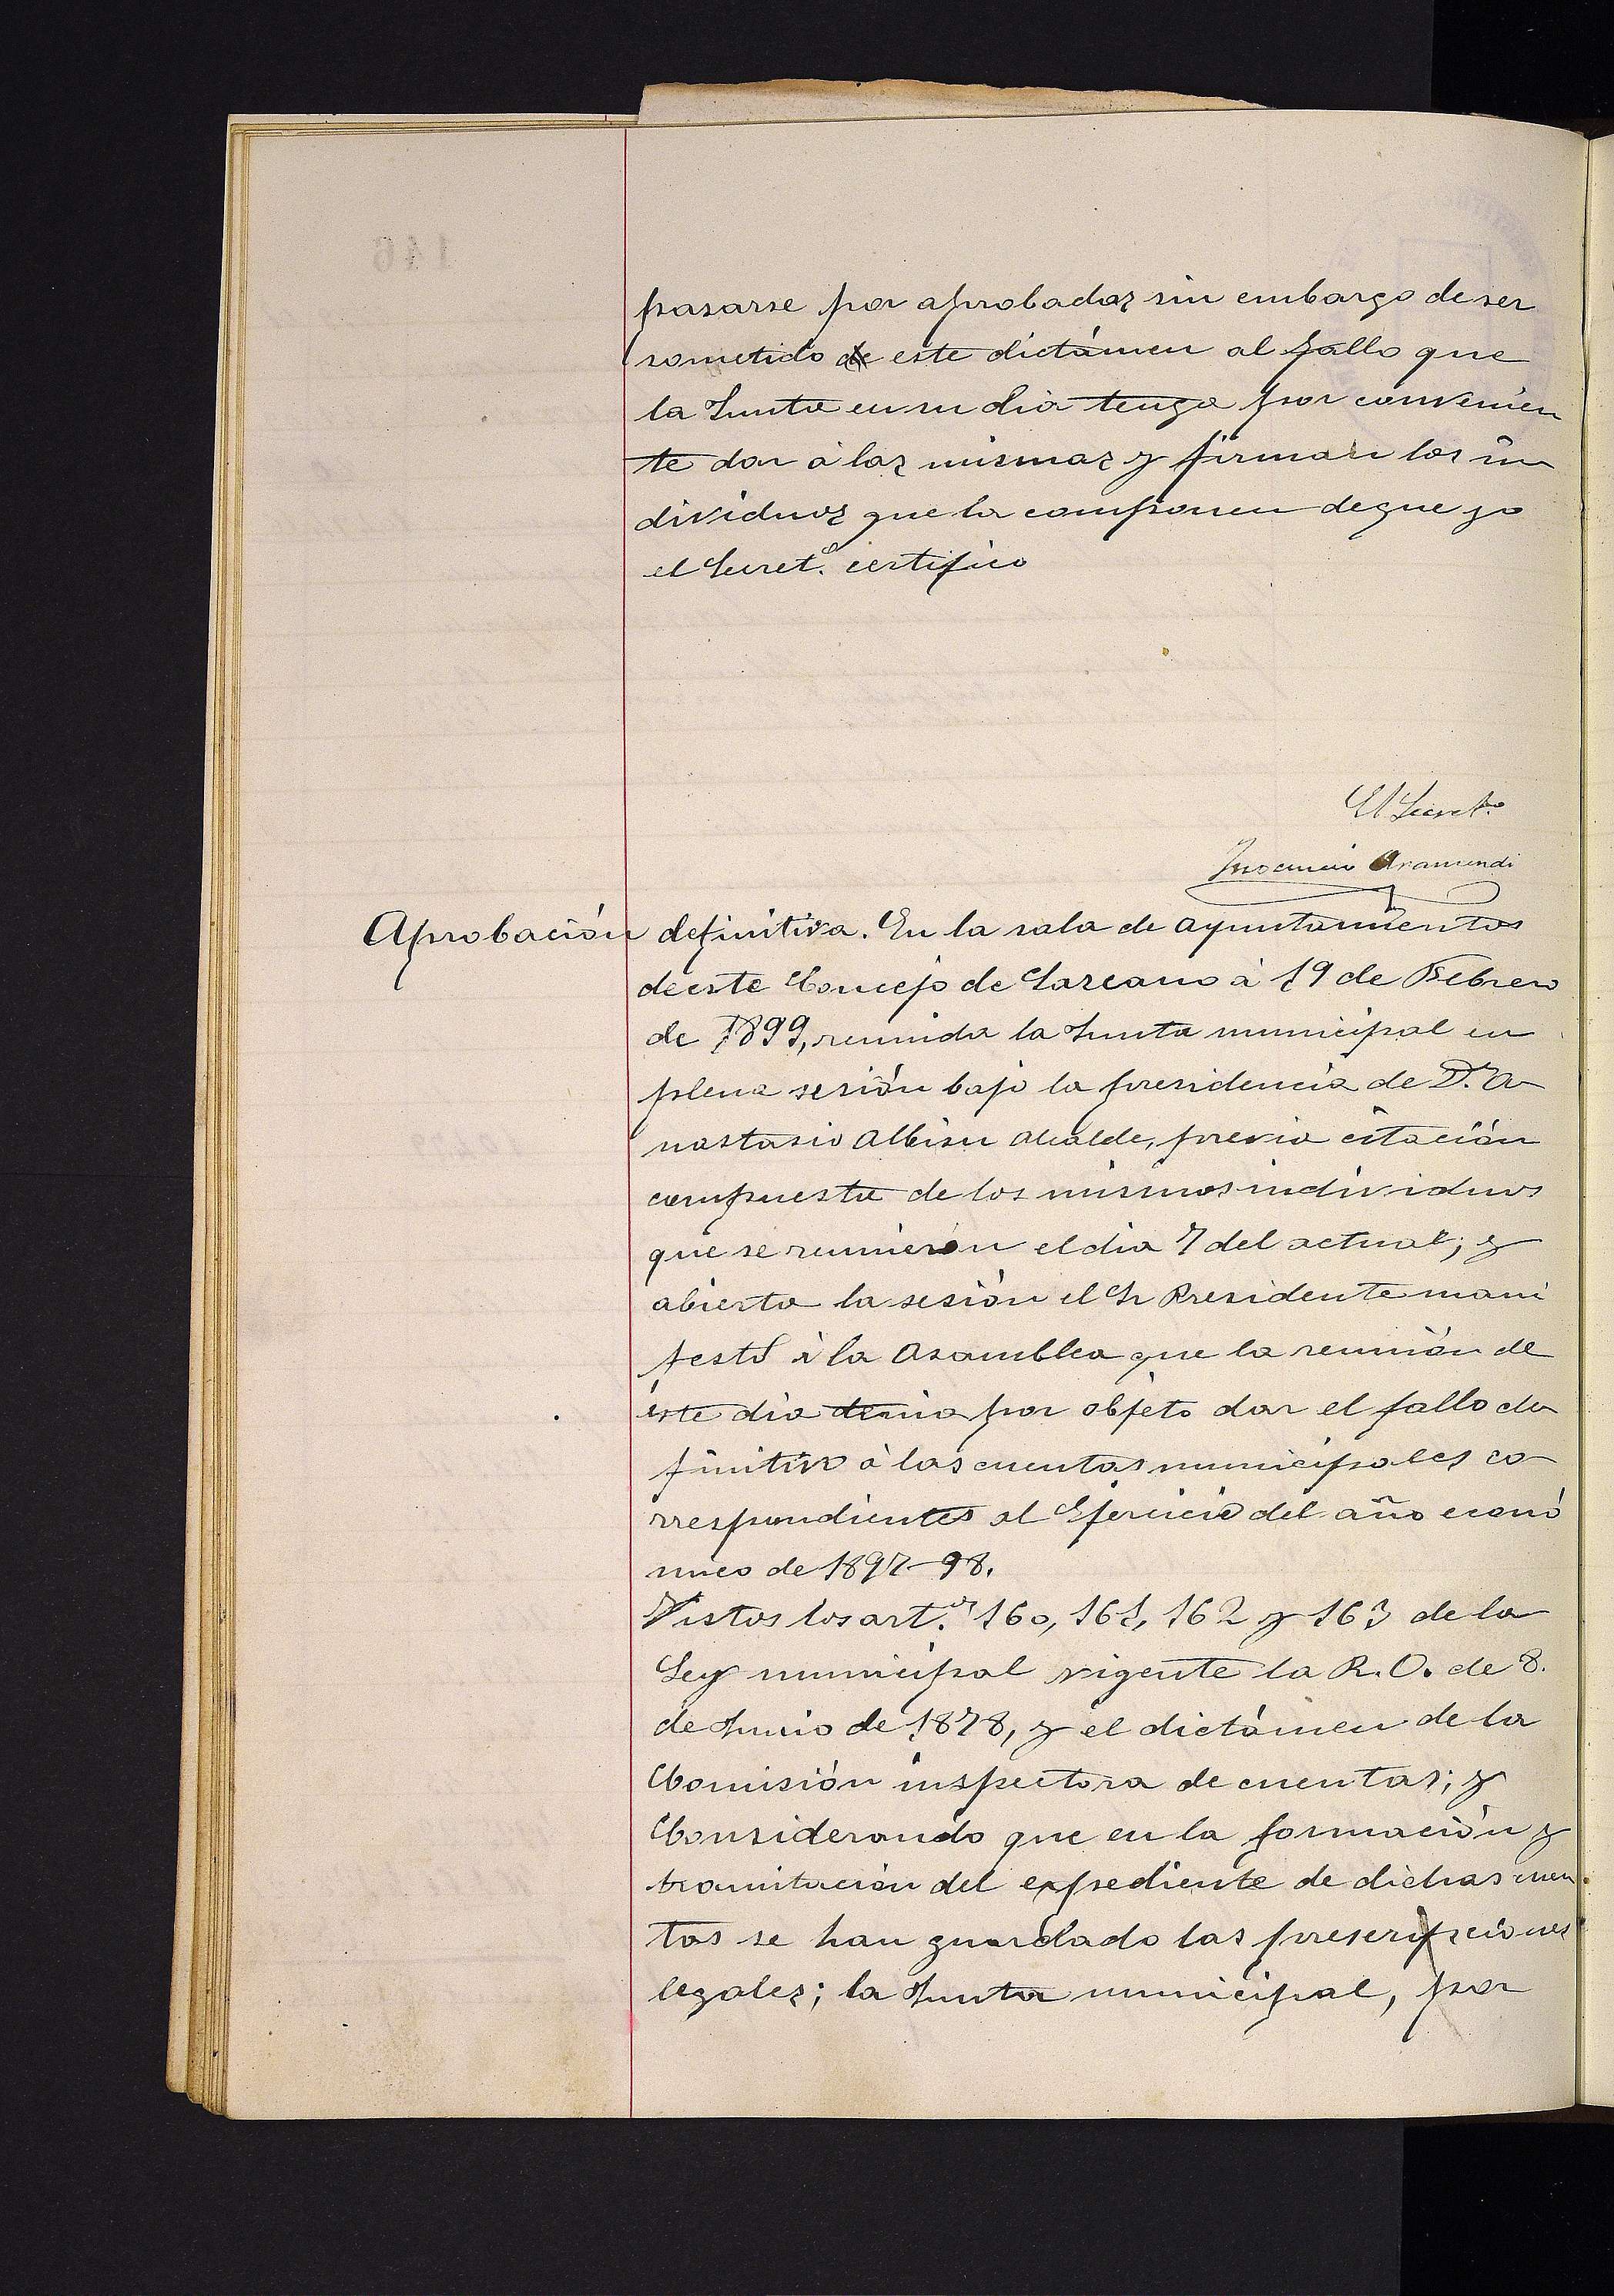 pasarse por aprobadas sin embargo de ser
sometido este dictámen al fallo que
la Junta en su dia tenga por convenien
te dar á las mismas y firman los in
dividuos que la componen de que yo
el Secret.º certifico
El Secret.rio
Inocencio Aramendi
Aprobación definitiva. En la sala de ayuntamientos
de este Concejo de Lazcano á 19 de Febrero
de 1899, reunida la Junta municipal en
plena sesión bajo la presidencia de D.n A
nastasio Albisu alcalde, previa citación
compuesta de los mismos individuos
que se reunierón el dia 7 del actual; y
abierta la sesión el Sr Presidente mani
festó á la Asamblea que la reunión de
éste dia tenia por objeto dar el fallo de
finitivo á las cuentas municipales co
rrespondientes al Ejercicio del año econó
mico de 1897-98.
Vistos los art.s 160, 161, 162 y 163 de la
Ley municipal vigente la R.O. de 8.
de Junio de 1878, y el dictámen de la
Comisión inspectora de cuentas; y
Considerando que en la formación y
tramitación del expediente de dichas cuen
tas se han guardado las prescripciones
legales; la Junta municipal, por